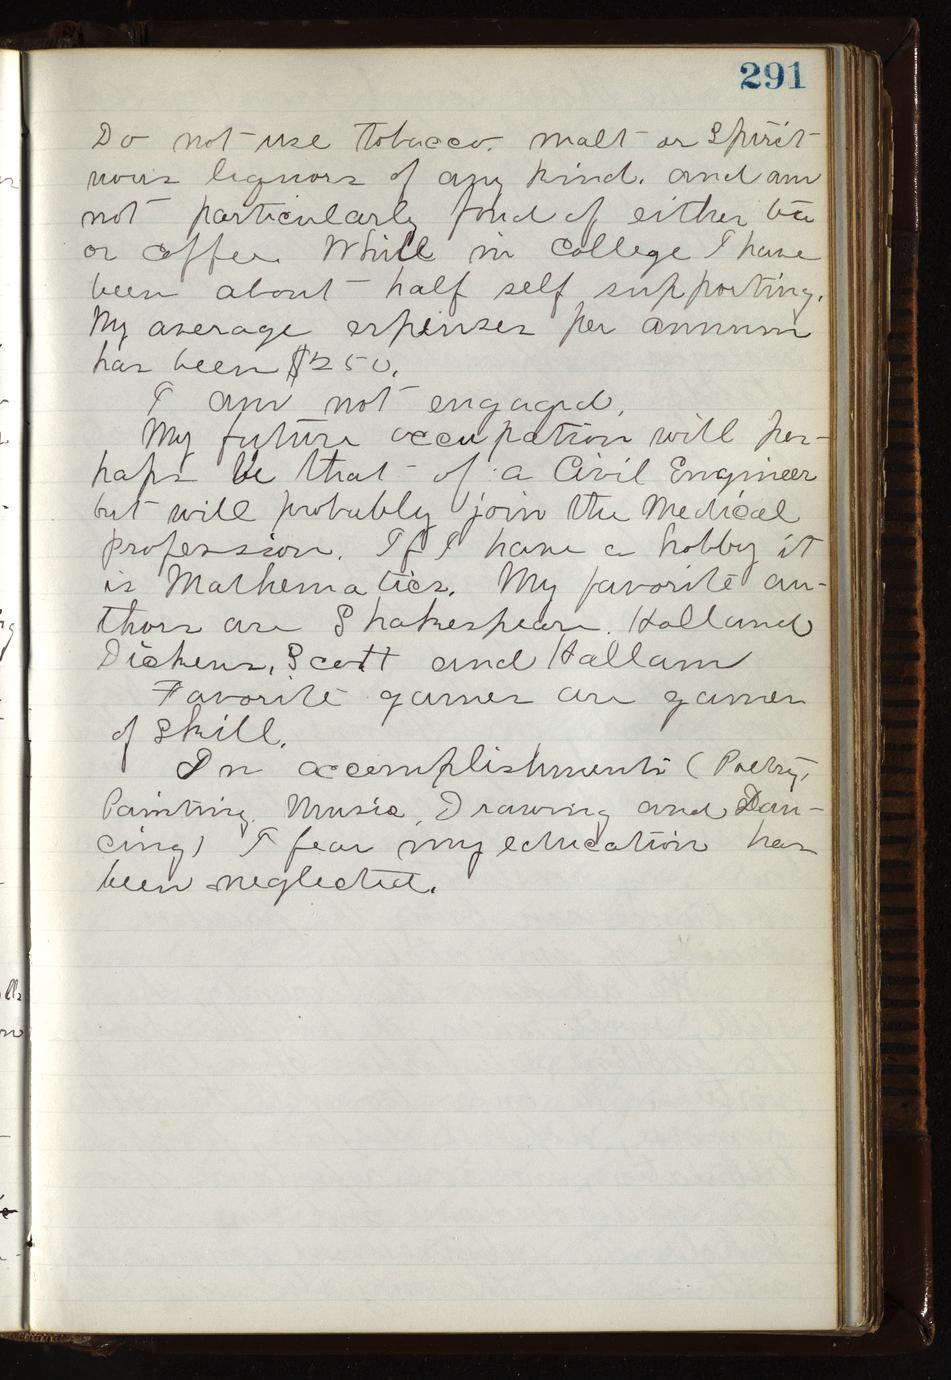 291
Do not use tobacco. malt or Spirit-
uous liquors of any kind. and am
not particularly fond of either tea
or coffee. While in College I have
been about half self supporting.
My average expenses per annum
has been $250.
I am not engaged.
My future occupation will per-
haps be that of a Civil Engineer
but will probably join the Medical
profession. If I have a hobby it
is Mathematics. My favorite au-
thors are Shakespeare. Holland
Dickens, Scott and Hallam
Favorite games are games
of Skill.
In accomplishments (Poetry,
Painting, Music, Drawing and Dan-
cing) I fear my education has
been neglected.